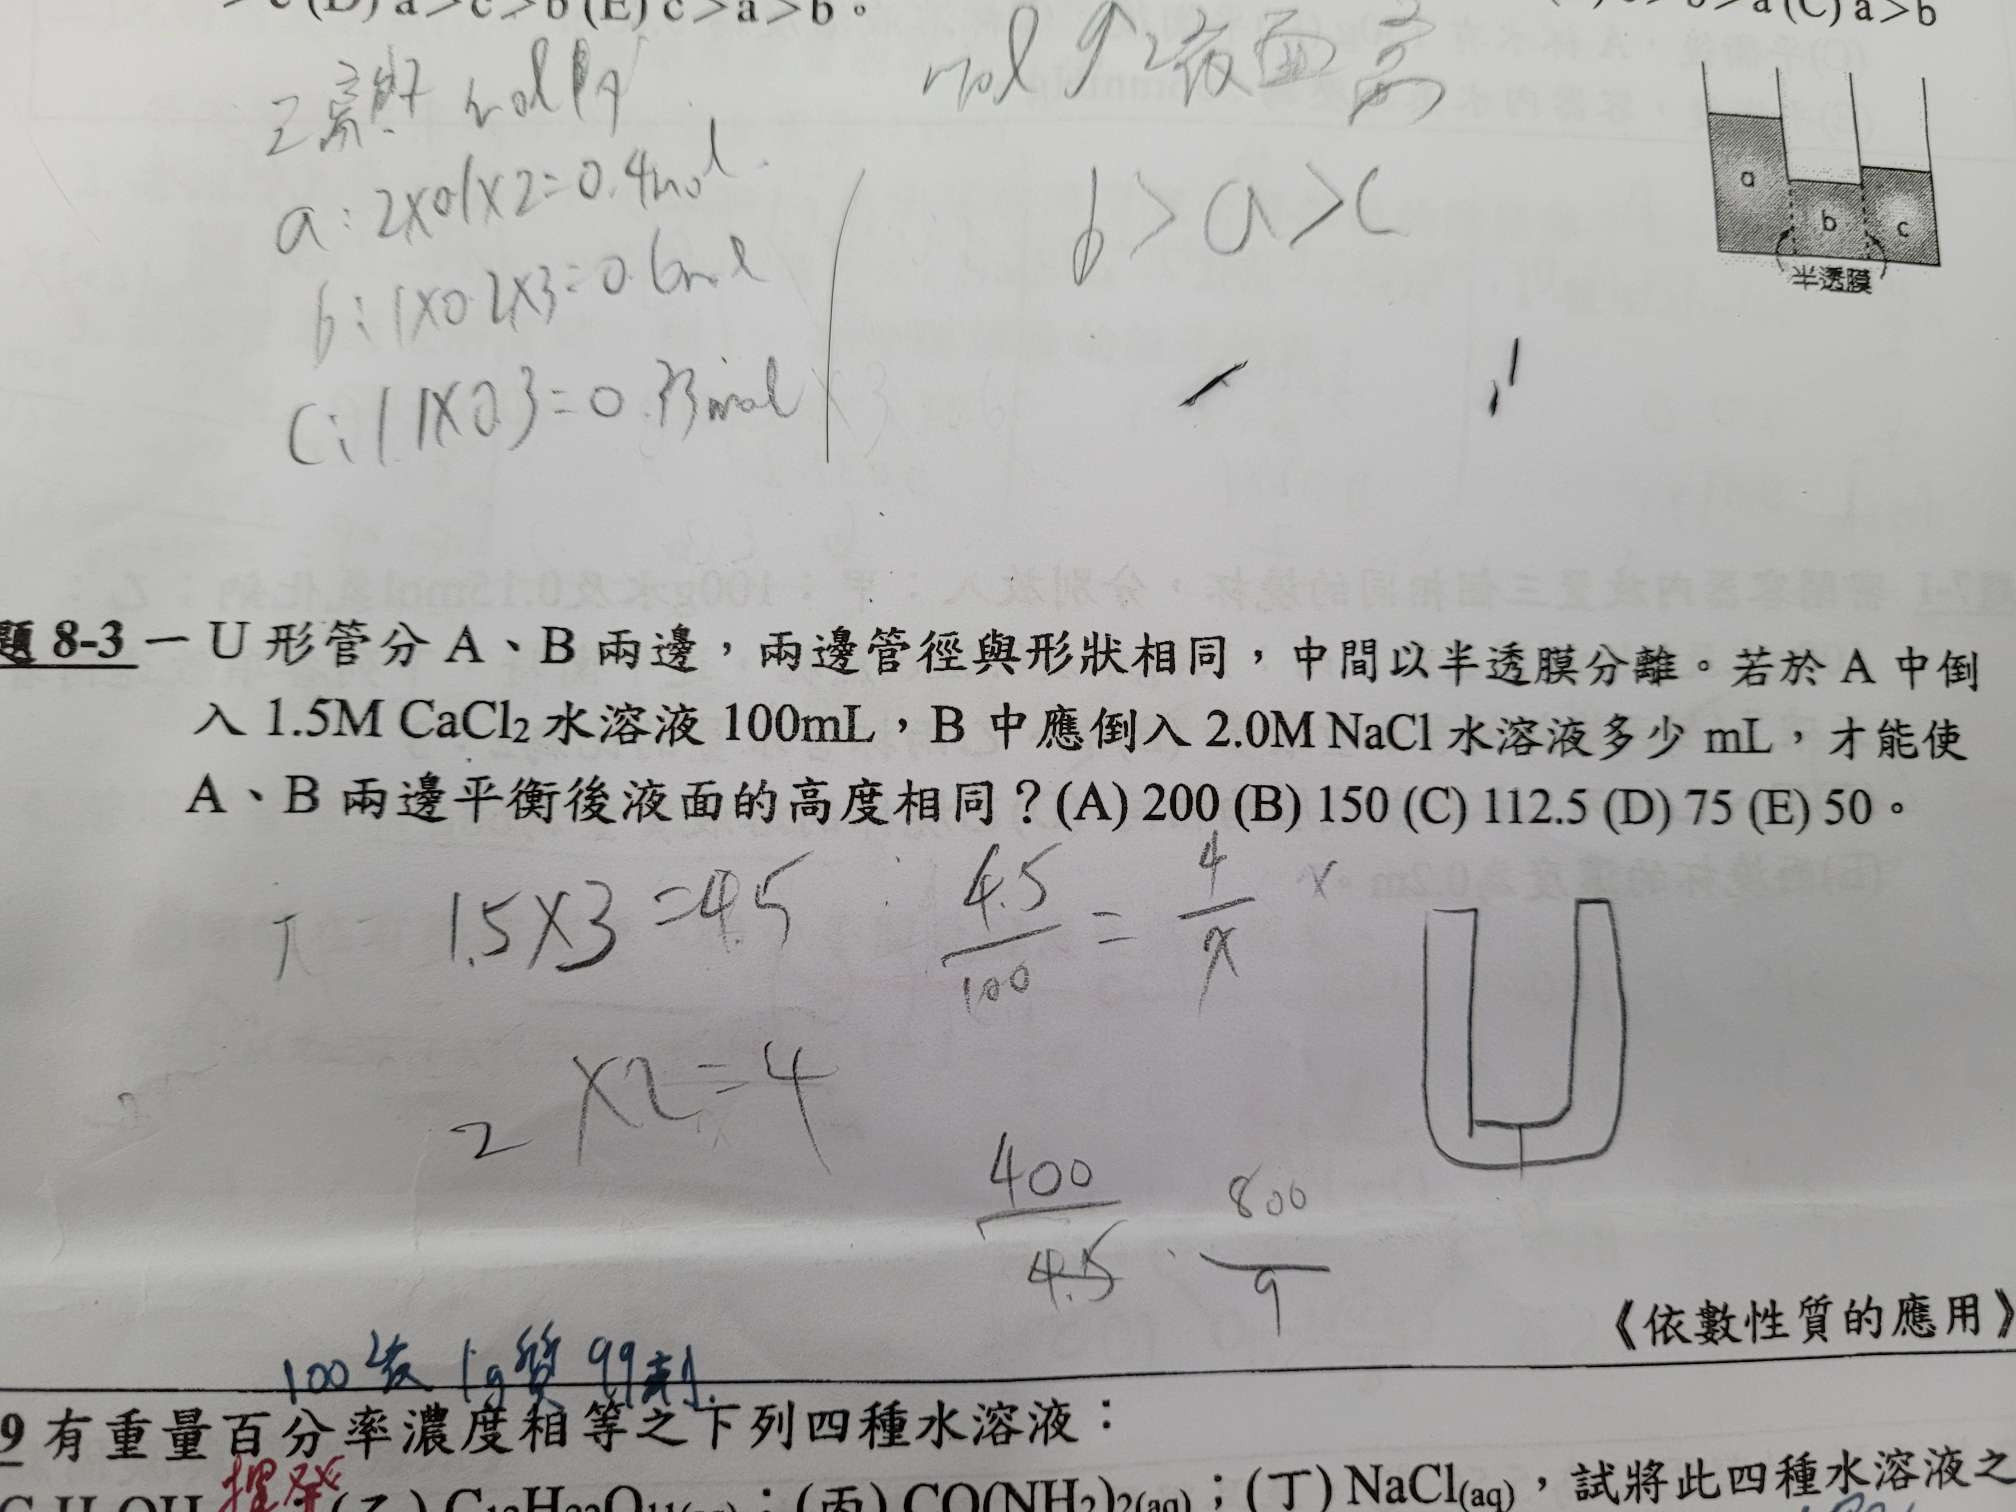 >c (D) a>c>b (E) c>a>b。
a (C) a>b
mol 個
mol ↑ 液面高
a:2×0.1×2=0.4mol
b:1×0.2×3=0.6mol
c:1.1×0.3=0.33mol
b>a>c
a
b
c
半透膜
題 8-3 一 U 形管分 A、B 兩邊,兩邊管徑與形狀相同,中間以半透膜分離。若於 A 中倒
入 1.5M CaCl₂ 水溶液 100mL,B 中應倒入 2.0M NaCl 水溶液多少 mL,才能使
A、B 兩邊平衡後液面的高度相同?(A) 200 (B) 150 (C) 112.5 (D) 75 (E) 50。
π = 1.5×3=4.5
4.5/100 = 4/x
x
2×2=4
400/4.5
800/9
《依數性質的應用》
100液 1g質 99劑
9 有重量百分率濃度相等之下列四種水溶液:
揮發
;(丙) CO(NH₂)₂(aq);(丁) NaCl(aq),試將此四種水溶液之